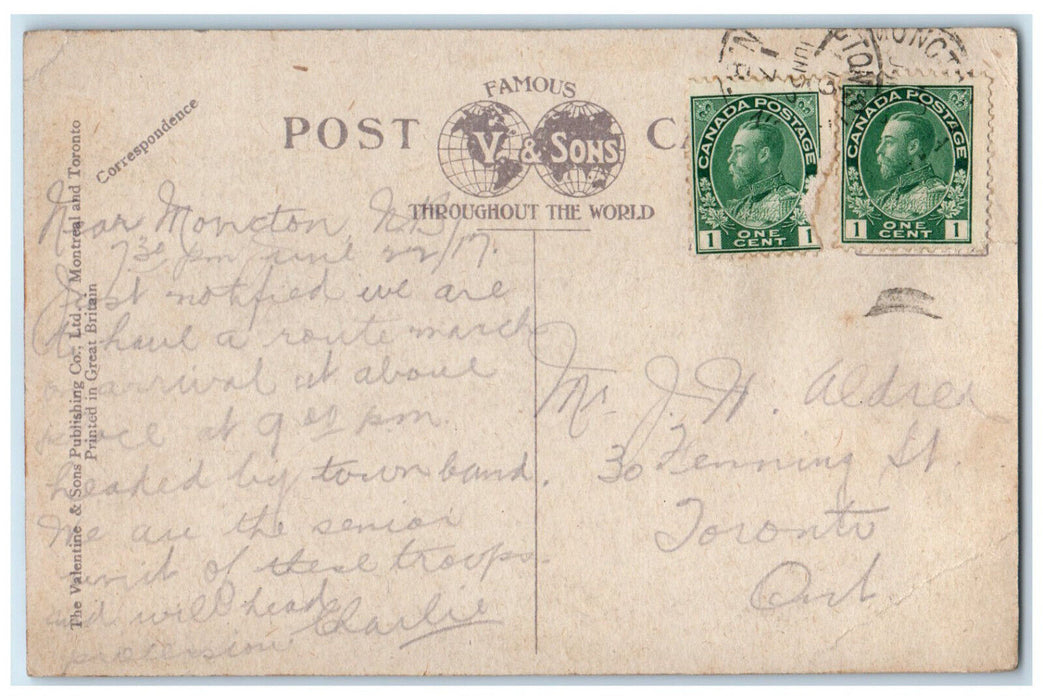 Correspondence
POST
FAMOUS
V. & SONS
THROUGHOUT THE WORLD
CANADA POSTAGE
1 ONE CENT 1
CANADA POSTAGE
1 ONE CENT 1
MONCT
The Valentine & Sons Publishing Co., Ltd., Montreal and Toronto
Printed in Great Britain
Near Moncton N.B.
7 30 pm 22/17.
Just notified we are
to haul a route march
arrival at above
place at 9 pm.
headed by town band.
We are the senior
unit of these troops
and will head
procession
Charlie
Mr. J. H. Aldred
30 Fenning St.
Toronto
Ont.